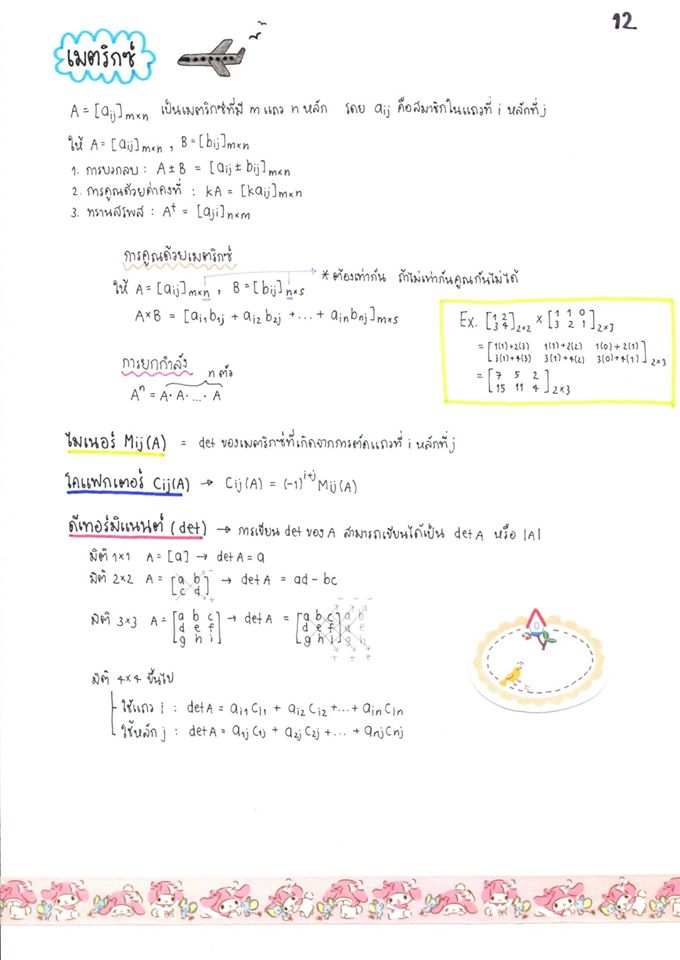 12
เมตริกซ์
A = [aij]m×n เป็นเมตริกซ์ที่มี m แถว n หลัก โดย aij คือสมาชิกในแถวที่ i หลักที่ j
ให้ A = [aij]m×n , B = [bij]m×n
1. การบวกลบ : A ± B = [aij ± bij]m×n
2. การคูณด้วยค่าคงที่ : kA = [kaij]m×n
3. ทรานสโพส : Aᵗ = [aji]n×m
การคูณด้วยเมตริกซ์
* ต้องเท่ากัน ถ้าไม่เท่ากันคูณกันไม่ได้
ให้ A = [aij]m×n , B = [bij]n×s
A×B = [ai1b1j + ai2b2j + ... + ainbnj]m×s
Ex. [1 2 3 4]2×2 × [1 1 0 3 2 1]2×3
= [1(1)+2(3) 1(1)+2(2) 1(0)+2(1)
3(1)+4(3) 3(1)+4(2) 3(0)+4(1)]2×3
= [7 5 2
15 11 4]2×3
การยกกำลัง
n ตัว
Aⁿ = A·A·...·A
ไมเนอร์ Mij(A) = det ของเมตริกซ์ที่เกิดจากการตัดแถวที่ i หลักที่ j
โคแฟกเตอร์ Cij(A) → Cij(A) = (-1)^i+j Mij(A)
ดีเทอร์มิแนนต์ (det) → การเขียน det ของ A สามารถเขียนได้เป็น det A หรือ |A|
มิติ 1×1 A = [a] → det A = a
มิติ 2×2 A = [a b c d] → det A = ad - bc
มิติ 3×3 A = [a b c d e f g h i] → det A = [a b c d e f g h i] a b d e g h
มิติ 4×4 ขึ้นไป
ใช้แถว i : det A = ai1Ci1 + ai2Ci2 + ... + ainCin
ใช้หลัก j : det A = a1jC1j + a2jC2j + ... + anjCnj